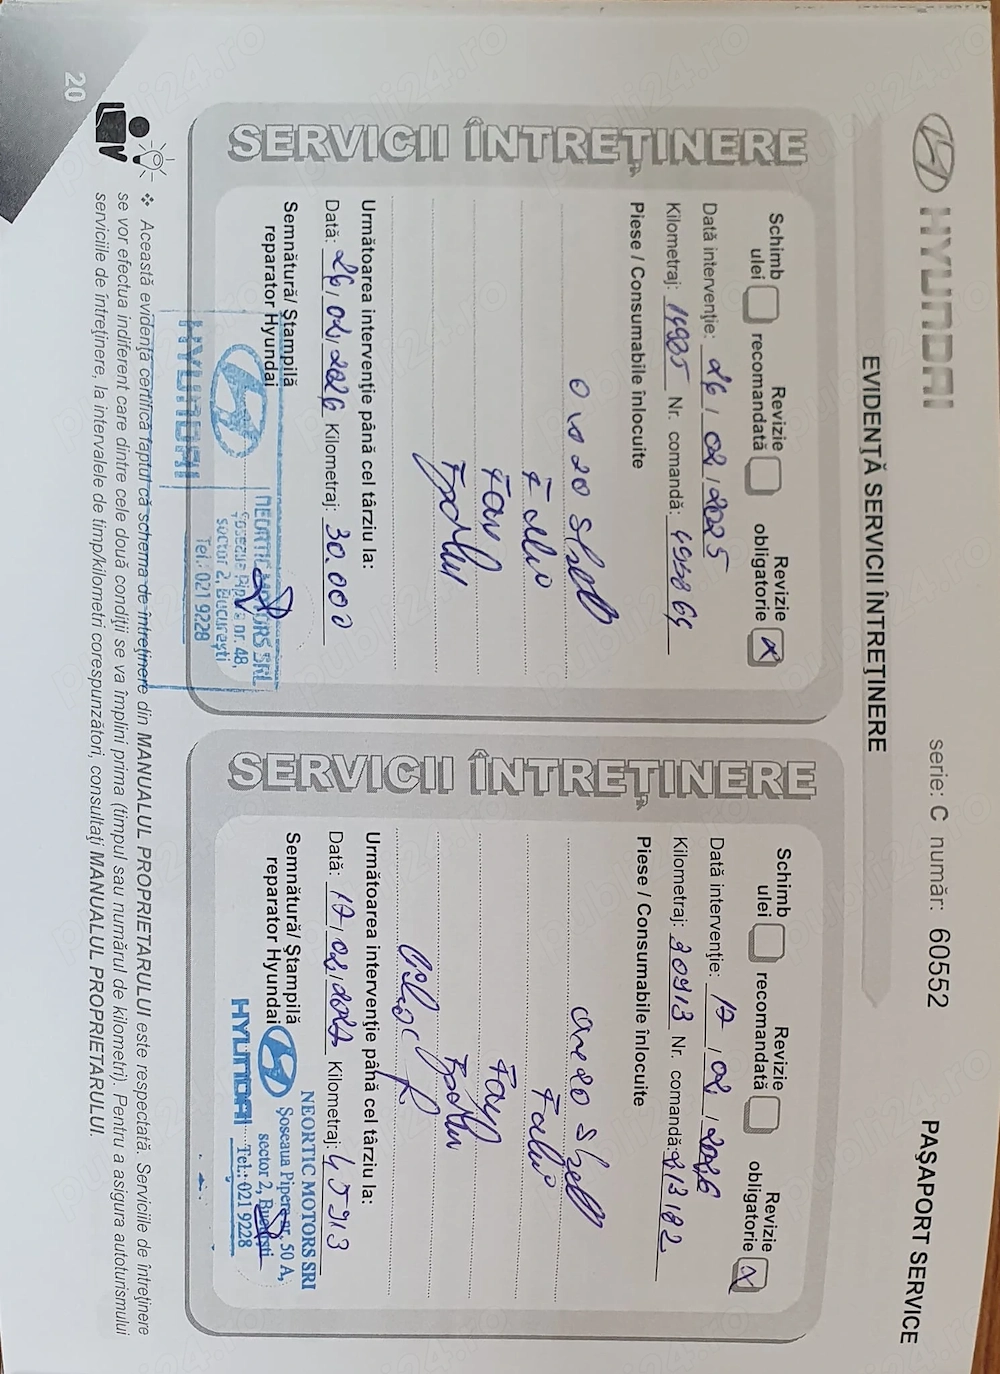 HYUNDAI
serie: C număr: 60552
PAȘAPORT SERVICE
EVIDENȚĂ SERVICII ÎNTREȚINERE
SERVICII ÎNTREȚINERE
Schimb ulei
Revizie recomandată
Revizie obligatorie x
Dată intervenție: 26 / 02 / 2025
Kilometraj: 14985 Nr. comandă:
Piese / Consumabile înlocuite
0w20 Shell
F. ulei
F aer
F polen
Următoarea intervenție până cel târziu la:
Dată: 26 / 02 / 2026 Kilometraj: 30.000
Semnătură/ Ștampilă
reparator Hyundai
HYUNDAI
NEORTIC MOTORS SRL
Șoseaua Pipera nr. 48,
sector 2, București
Tel.: 021 9228
SERVICII ÎNTREȚINERE
Schimb ulei
Revizie recomandată
Revizie obligatorie x
Dată intervenție: 17 / 02 / 2026
Kilometraj: 30913 Nr. comandă: 213182
Piese / Consumabile înlocuite
0w20 Shell
F ulei
F aer
F polen
Următoarea intervenție până cel târziu la:
Dată: 17 / 02 / 2027 Kilometraj: 45913
Semnătură/ Ștampilă
reparator Hyundai
HYUNDAI
NEORTIC MOTORS SRL
Șoseaua Pipera nr. 50 A,
sector 2, București
Tel.: 021 9228
❖ Această evidență certifică faptul că schema de întreținere din MANUALUL PROPRIETARULUI este respectată. Serviciile de întreținere
se vor efectua indiferent care dintre cele două condiții se va împlini prima (timpul sau numărul de kilometri). Pentru a asigura autoturismului
serviciile de întreținere, la intervalele de timp/kilometri corespunzători, consultați MANUALUL PROPRIETARULUI.
20
publi24.ro